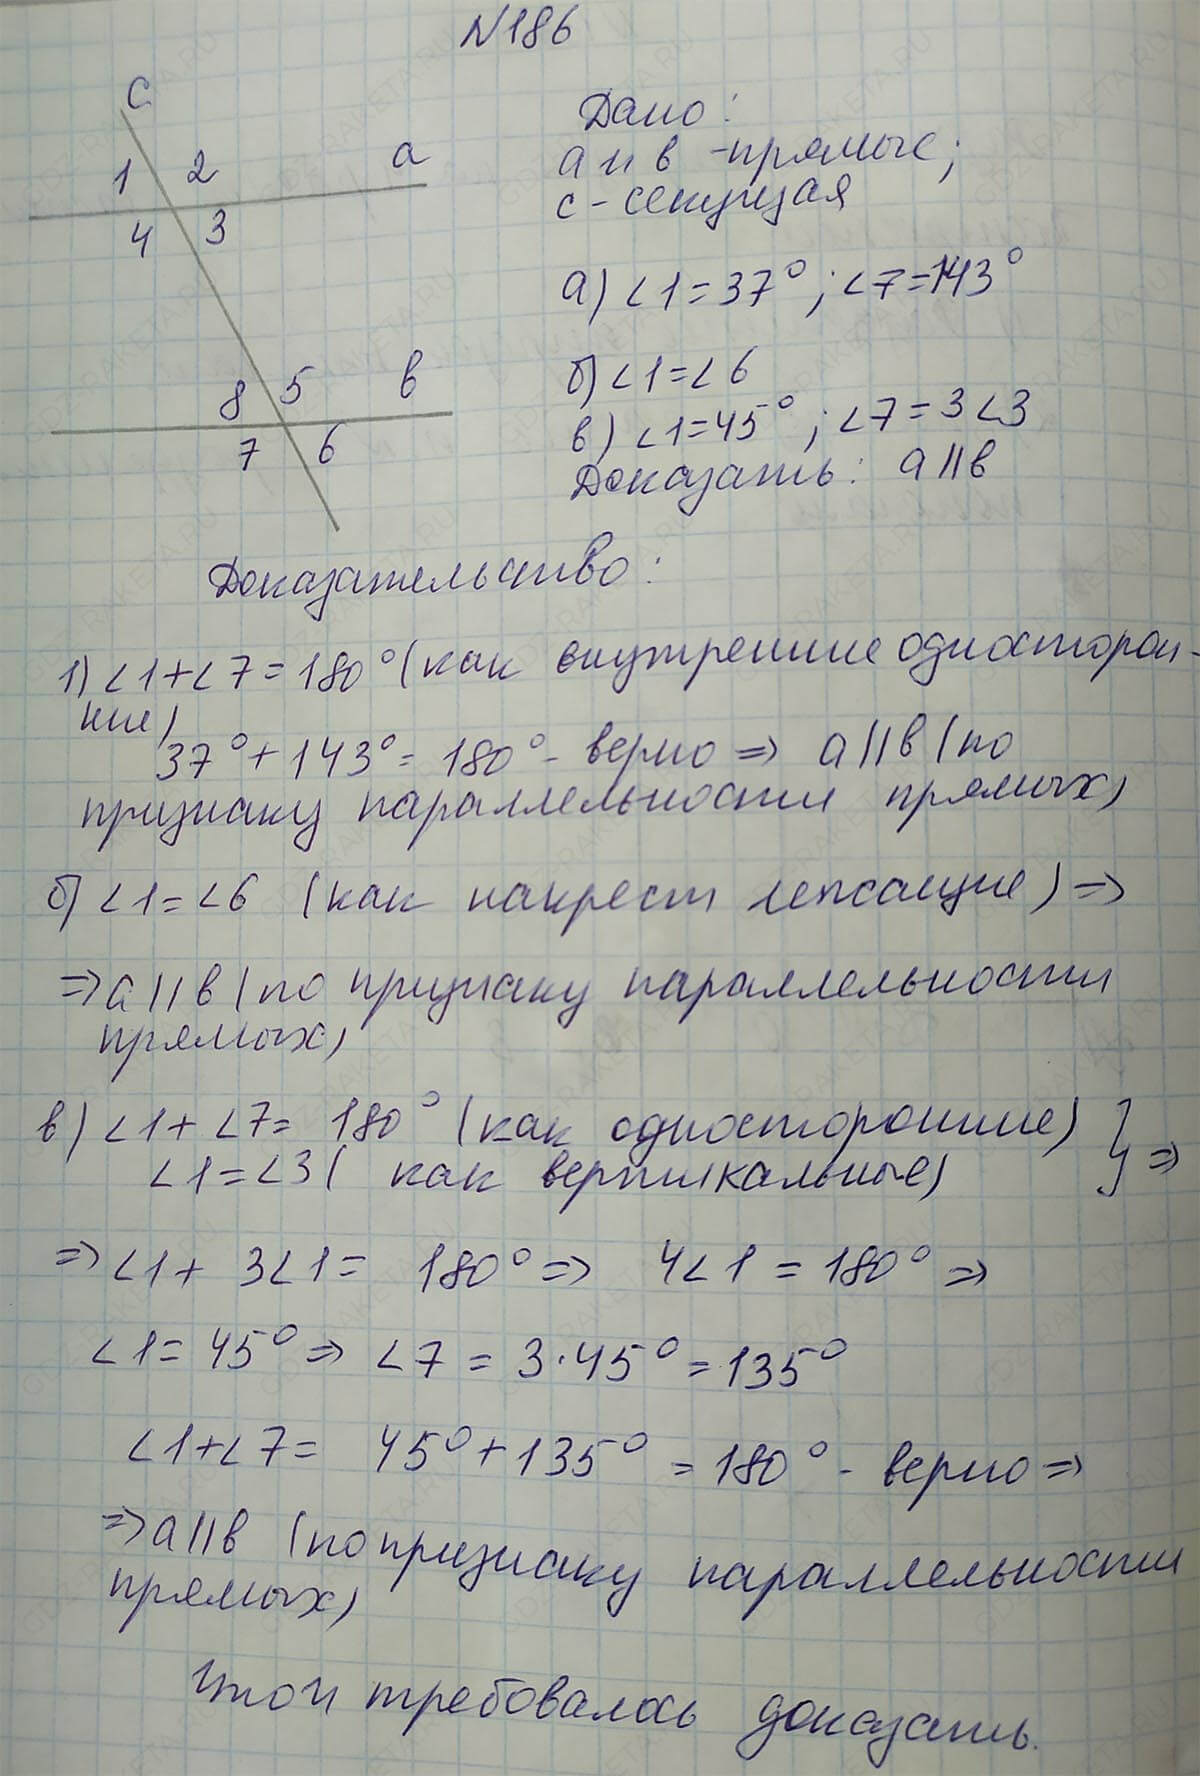 N186
c
1 2 a
4 3
8 5 в
7 6
Дано:
а и в - прямые;
с - секущая
а) ∠1=37°; ∠7=143°
б) ∠1=∠6
в) ∠1=45°; ∠7=3∠3
Доказать: a||в
Доказательство:
1) ∠1+∠7=180° (как внутренние односторон-
ние)
37°+143°=180° - верно => a||в (по
признаку параллельности прямых)
б) ∠1=∠6 (как накрест лежащие) =>
=> a||в (по признаку параллельности
прямых)
в) ∠1+∠7= 180° (как односторонние) } =>
∠1=∠3 ( как вертикальные)
=> ∠1+ 3∠1= 180° => 4∠1 = 180° =>
∠1= 45° => ∠7 = 3·45° = 135°
∠1+∠7= 45°+135° = 180° - верно =>
=> a||в (по признаку параллельности
прямых)
Что и требовалось доказать.